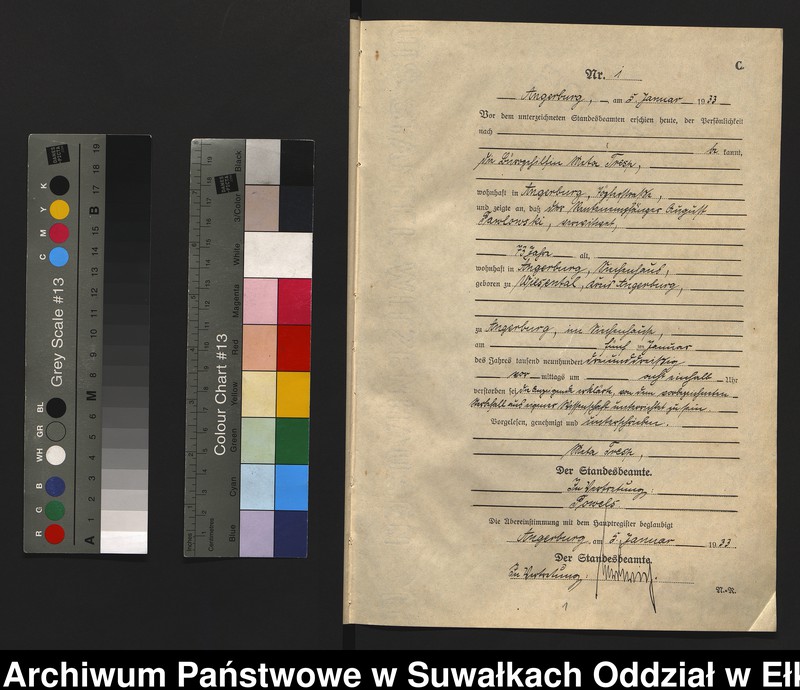 C.
Nr. 1
Angerburg, am 5. Januar 1933
Vor dem unterzeichneten Standesbeamten erschien heute, der Persönlichkeit
nach
be kannt,
die Bürogehilfin Meta Tresp,
wohnhaft in Angerburg,
und zeigte an, daß der Rentenempfänger August
Pawlowski, verwitwet,
73 Jahre alt,
wohnhaft in Angerburg, Siechenhaus,
geboren zu Wiesental, Kreis Angerburg,
zu Angerburg, im Siechenhause,
am fünf ten Januar
des Jahres tausend neunhundert dreiunddreißig
vor mittags um acht einhalb Uhr
verstorben sei, die Anzeigende erklärte, von dem vorbezeichneten
Sterbefall aus eigener Wissenschaft unterrichtet zu sein.
Vorgelesen, genehmigt und unterschrieben.
Meta Tresp,
Der Standesbeamte.
In Vertretung
Powels
Die Übereinstimmung mit dem Hauptregister beglaubigt
Angerburg, am 5. Januar 1933.
Der Standesbeamte.
In Vertretung:
N.-R.
1
Grey Scale #13
C M Y K
R G B WH GR BL
A 1 2 3 4 5 6 M 8 9 10 11 12 13 14 15 B 17 18 19
Colour Chart #13
Inches
Centimetres
Blue Cyan Green Yellow Red Magenta White 3/Color Black
Archiwum Państwowe w Suwałkach Oddział w Eł